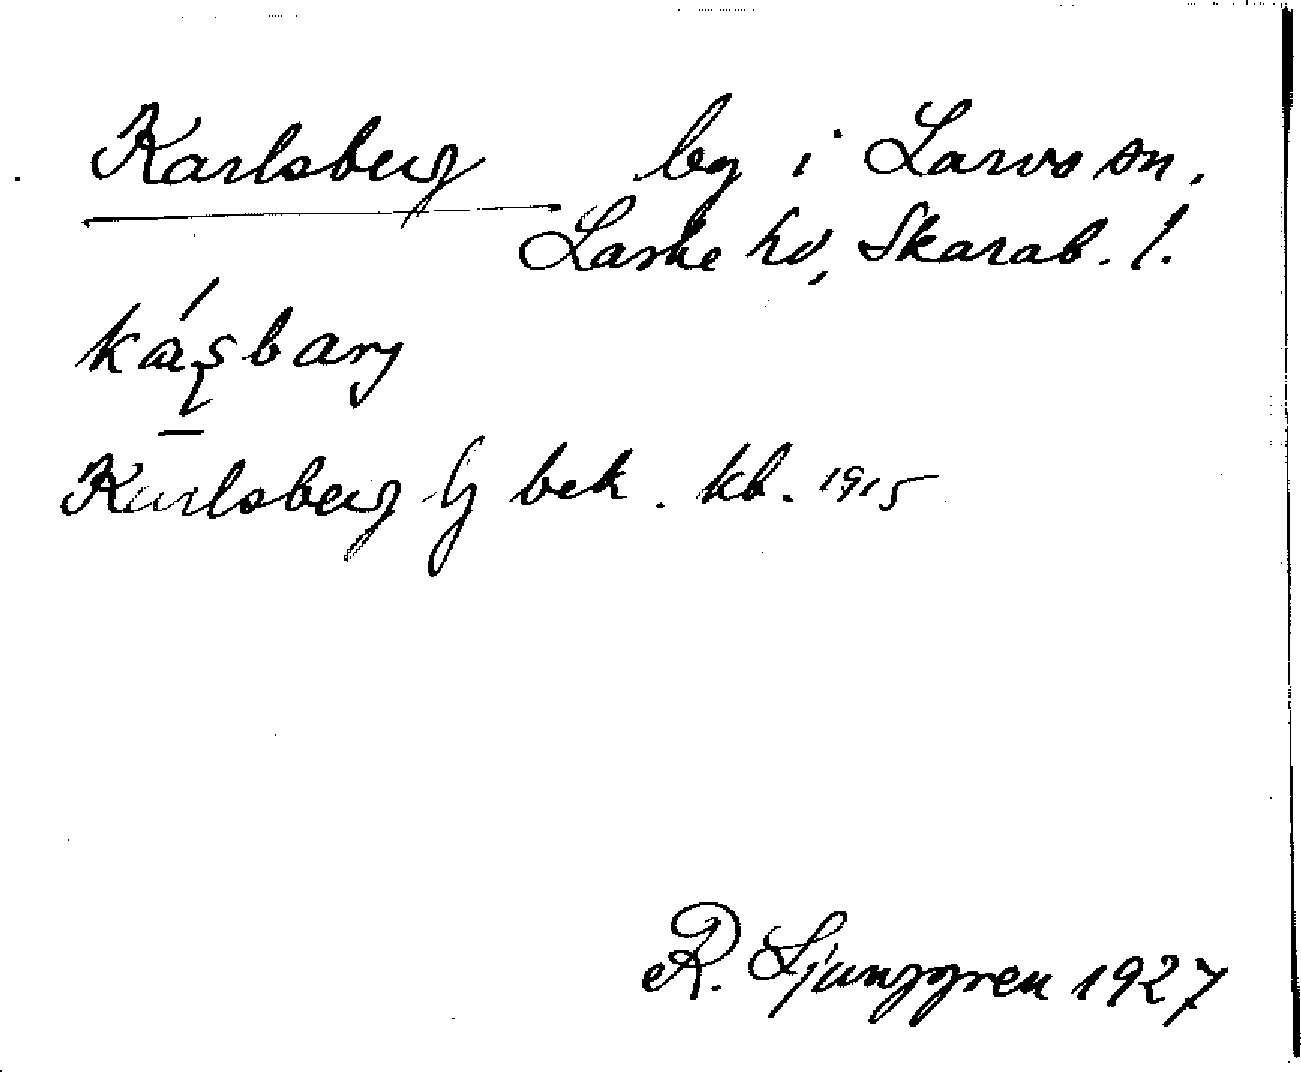 Karlsberg lg i Larvs sn,
Laske hd, Skarab. l.
Karlsberg lg bek. kb. 1915
R. Ljunggren 1927